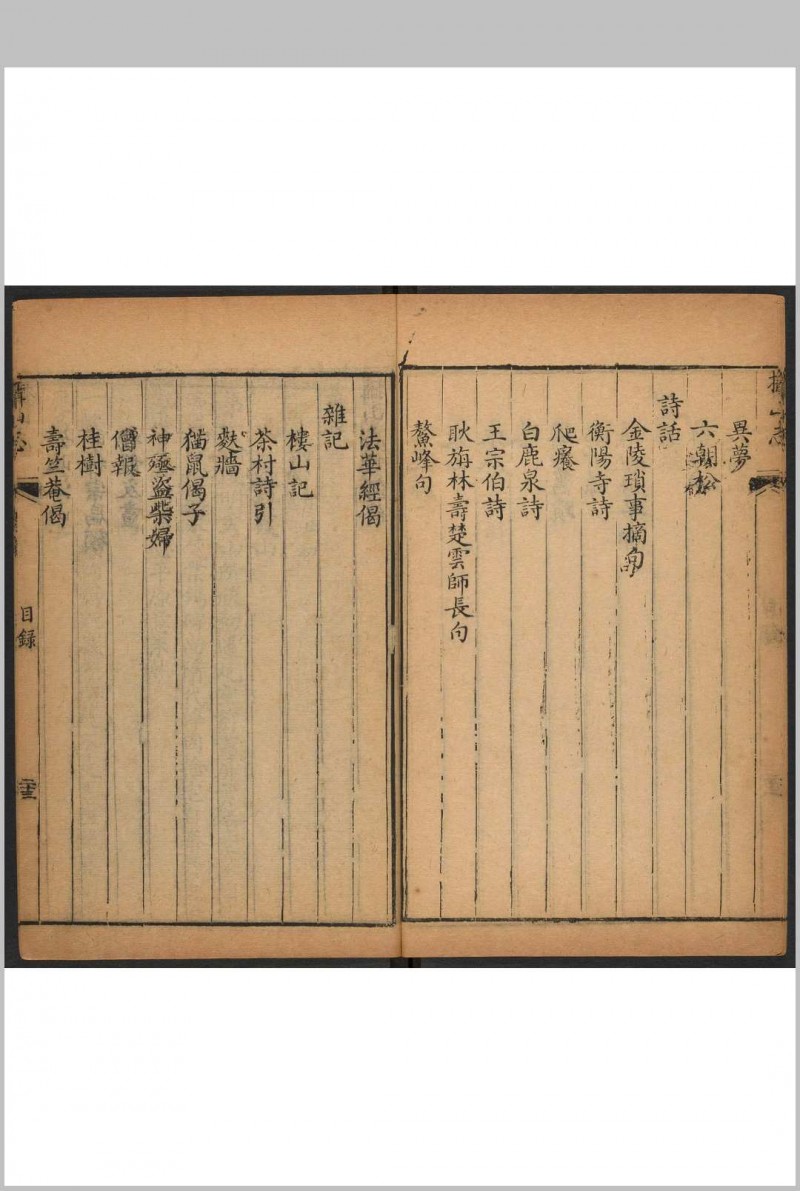 異夢
六朝松
詩話
金陵瑣事摘句
衡陽寺詩
爬癢
白鹿泉詩
王宗伯詩
耿旃林壽楚雲師長句
鰲峰句
法華經偈
雜記
樓山記
茶村詩引
麩牆
猫鼠偈子
神殛盜柴婦
僧報
桂樹
壽竺菴偈
目錄